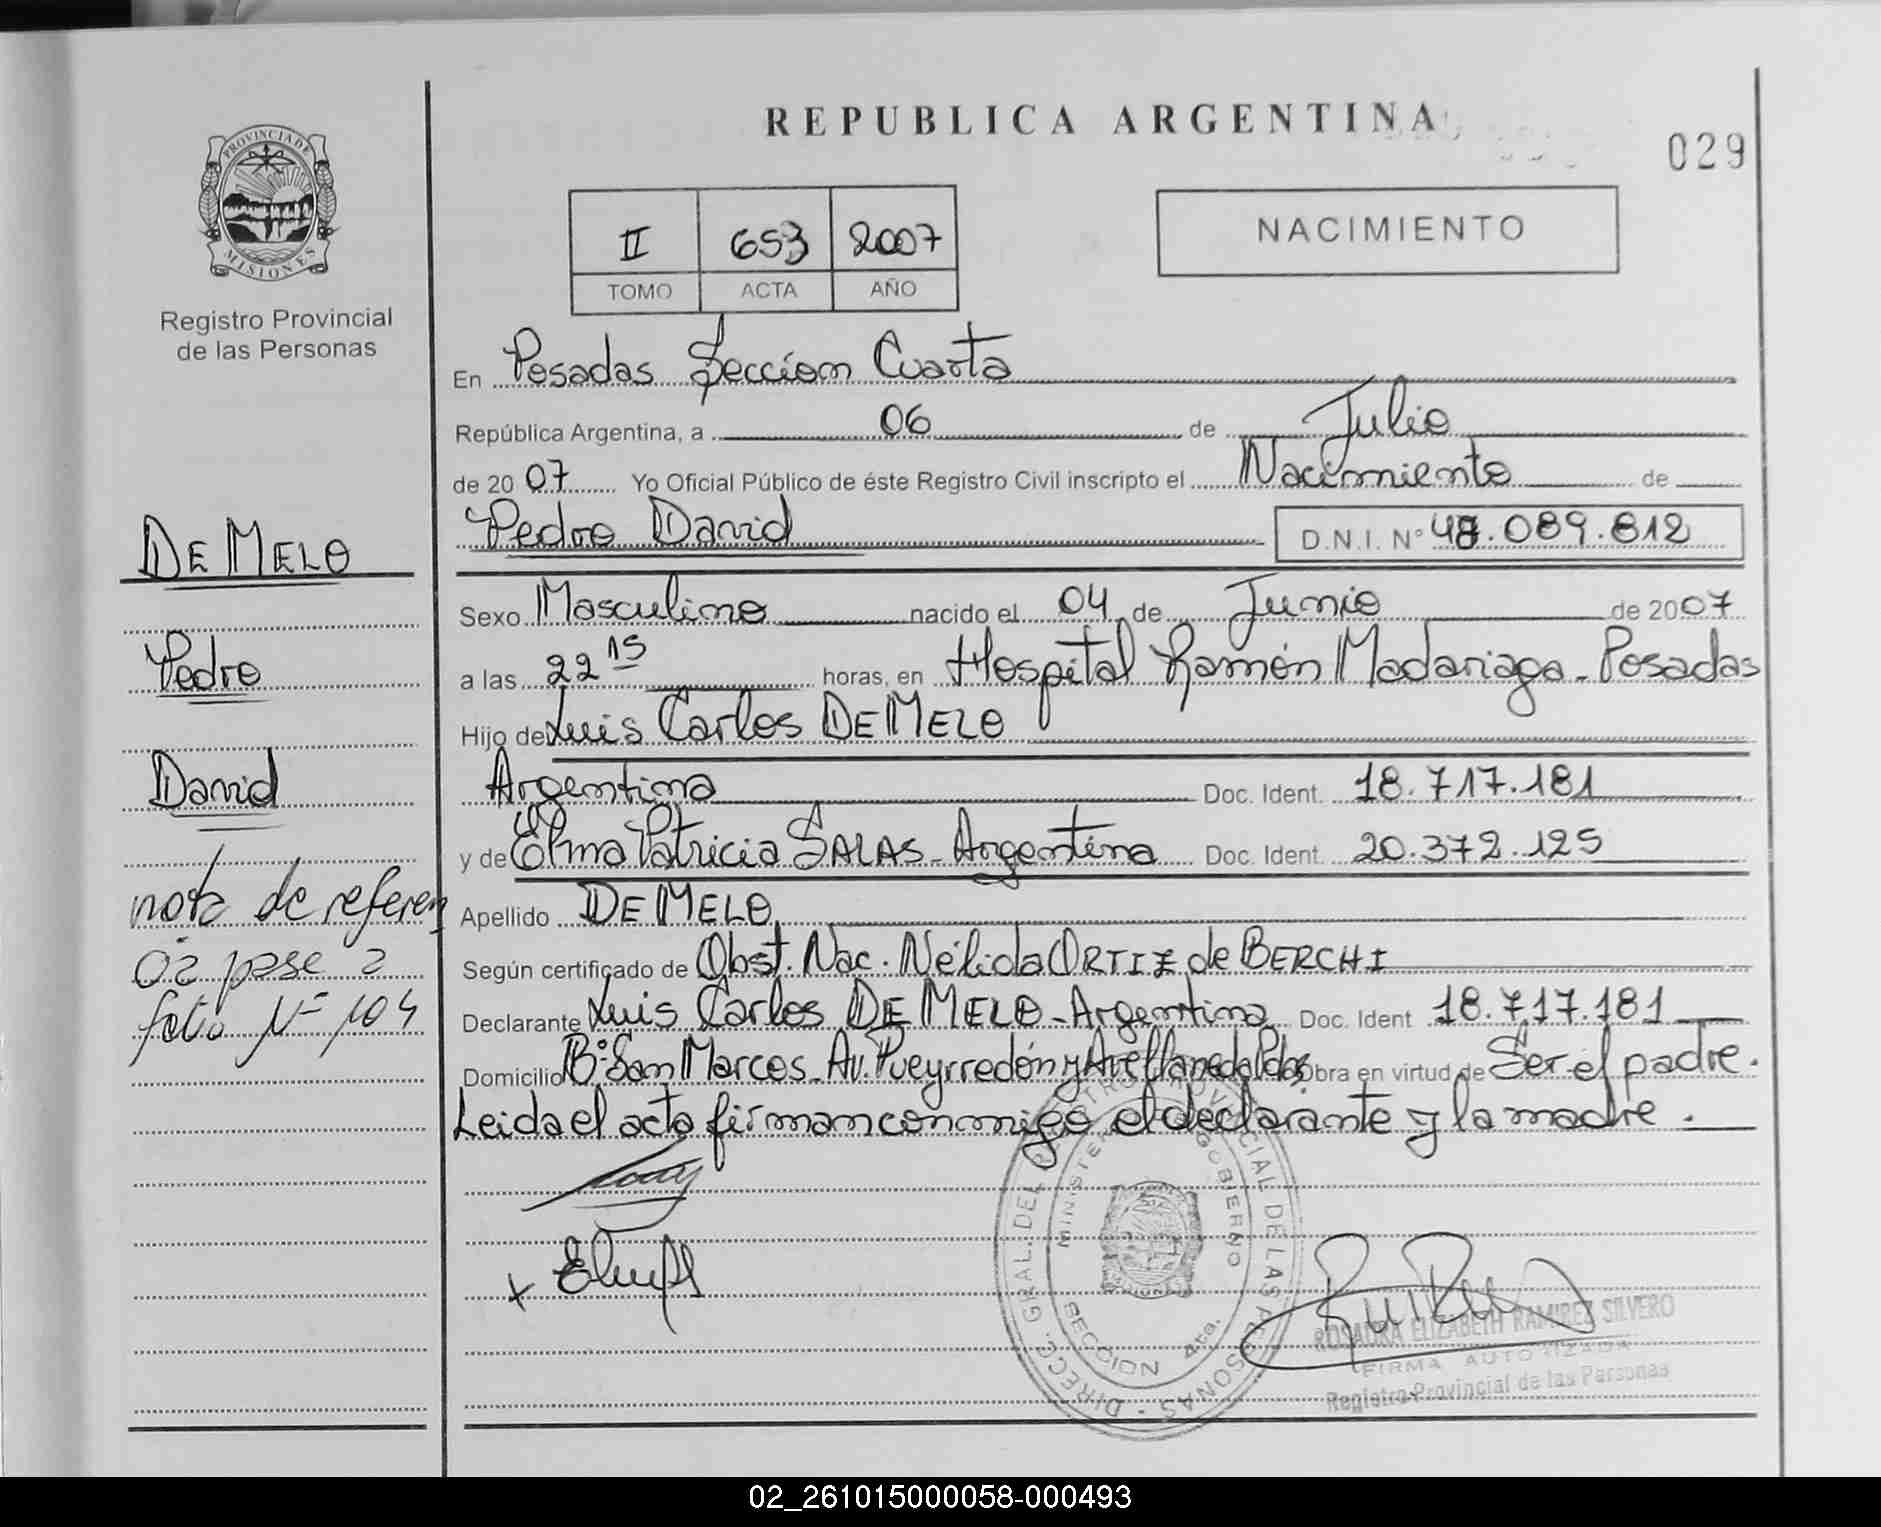 REPUBLICA ARGENTINA
029
PROVINCIA DE
MISIONES
Registro Provincial
de las Personas
II 653 2007
TOMO ACTA AÑO
NACIMIENTO
En Posadas Sección Cuarta
República Argentina, a 06 de Julio
de 2007 Yo Oficial Público de éste Registro Civil inscripto el Nacimiento de
Pedro David D.N.I. Nº 48.089.812
Sexo Masculino nacido el 04 de Junio de 2007
a las 22 15 horas, en Hospital Ramón Madariaga - Posadas
Hijo de Luis Carlos DE MELO
Argentina Doc. Ident. 18.717.181
y de Elma Patricia SALAS - Argentina Doc. Ident. 20.372.125
Apellido DE MELO
Según certificado de Obst. Nac. Nélida ORTIZ de BERCHI
Declarante Luis Carlos DE MELO - Argentina Doc. Ident 18.717.181
Domicilio Bº San Marcos - Av. Pueyrredón y Avellaneda Pdas Obra en virtud de Ser el padre.
Leida el acta firman conmigo el declarante y la madre.
DE MELO
Pedro
David
nota de referen
pase a
folio Nº 104
DIRECC. GRAL. DEL REGISTRO PROVINCIAL DE LAS PERSONAS
MINISTERIO GOBIERNO
SECCION 4ta.
ROSAURA ELIZABETH RAMIREZ SILVERO
FIRMA AUTORIZADA
Registro Provincial de las Personas
02_261015000058-000493